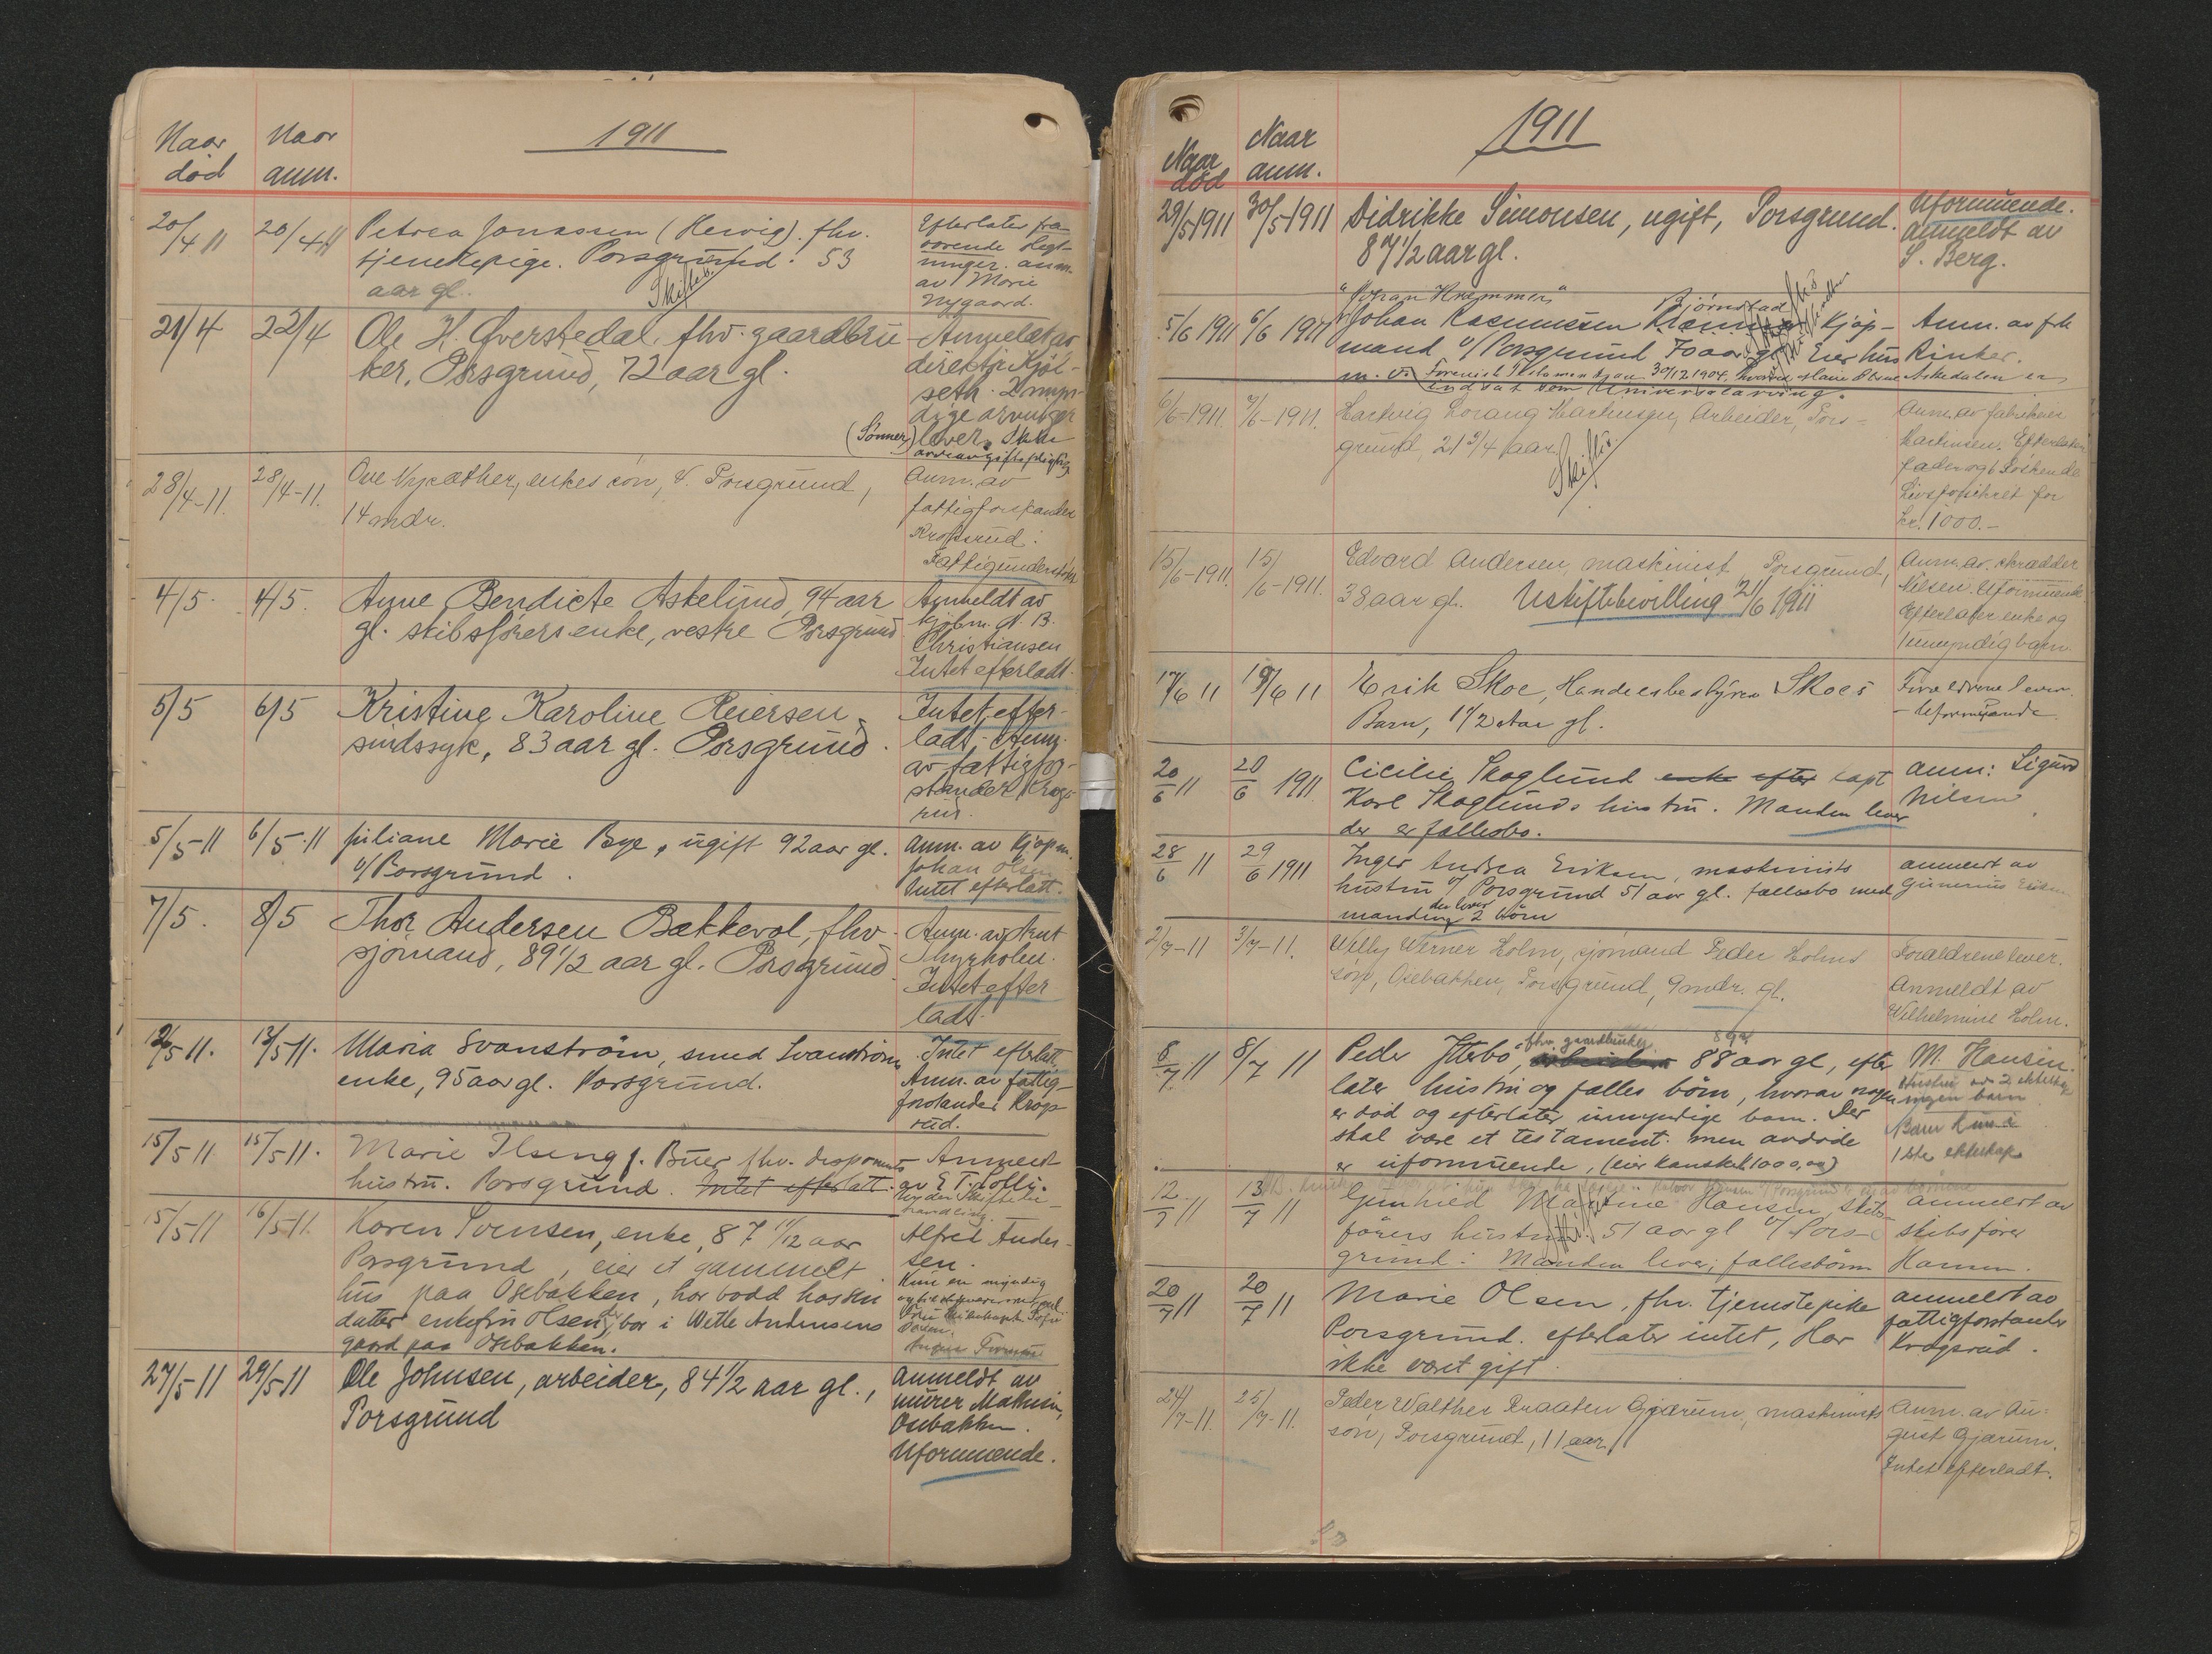 1911
Naar død
Naar anm.
20/4 11
20/4 11
Petrea Jonassen (Hervig). fhv.
tjenestepige. Porsgrund. 53
aar gl.
Skifteb.
Efterlater fra-
værende slegt-
ninger. anm.
av Marie
Nygaard.
21/4
22/4
Ole H. Øverstedal, fhv. gaardbru-
ker, Porsgrund, 72 aar gl.
Anmeldt av
direktør Kjøl-
seth. 2 myn-
dige arvinger
(Sønner) lever. Ikke
arveavgiftspligtig
28/4-11.
28/4-11.
Ove Nysæther, enkes søn, V. Porsgrund,
14 mdr.
Anm. av
fattigforstander
Krogsrud.
Fattigunderstøtt.
4/5.
4/5.
Anne Bendicte Askelund, 94 aar
gl. skibsførers enke, vestre Porsgrund
Anmeldt av
kjøbm. A. B.
Christiansen
Intet efterladt.
5/5
6/5
Kristine Karoline Reiersen
sindssyk, 83 aar gl. Porsgrund.
Intet efter-
ladt. Anm.
av fattigfor-
stander Krogs-
rud.
5/5-11
6/5-11
Juliane Marie Bye, ugift 92 aar gl.
v/Porsgrund.
Anm. av Kjøpm.
Johan Olsen
Intet efterlatt.
7/5.
8/5
Thor Andersen Bækkevol, fhv.
sjömand, 89 1/2 aar gl. Porsgrund.
Anm. av Knut
Thyrholm.
Intet efter
ladt.
12/5 11.
13/5 11.
Maria Svanström, smed Svanströms
enke, 95 aar gl. Porsgrund.
Intet efterlatt
Anm. av fattig-
forstander Krogs-
rud.
15/5 11
15/5 11.
Marie Ilseng f. Buer fhv. disponents
hustru. Porsgrund. Intet efterlatt.
Anmeldt
av E Tholli.
Ingen Skiftebe-
handling.
15/5 11
16/5 11.
Karen Svensen, enke, 87 11/12 aar
Porsgrund, eier et gammelt
hus paa Osebakken, har bodd hos sin
datter enkefru Olsen, der bor i Wette Andersens
gaard paa Osebakken.
Alfred Ander-
sen.
Kun en myndig
27/5 11
29/5 11
Ole Johnsen, arbeider, 84 1/2 aar gl.,
Porsgrund
Anmeldt av
murer Mathisen,
Osebakken.
Uformuende.
1911
Naar død
Naar anm.
29/5 1911
30/5 1911
Didrikke Simonsen, ugift, Porsgrund.
87 1/2 aar gl.
Uformuende.
Anmeldt av
S. Berg.
"Johan Kræmmer"
Bjørnstad
5/6 1911
6/6 1911
Johan Rasmussen Kræmmer Kjøp-
mand v/Porsgrund 70 aar gl. Eier hus
m. v. Foreviist Testament av 30/12 1904, hvorved Marie Olsine Askedalen er
indsat som Universalarving.
Anm. av frk
Rinker.
6/6-1911.
7/6-1911.
Hartvig Lorang Martinsen, Arbeider, Pors-
grund, 21 3/4 aar
Skifteb.
Anm. av fabrikeier
Martinsen. Efterlater
fader og 6 Söskende
Livsforsikret for
kr. 1000.-
15/6-1911.
15/6-1911.
Edvard Andersen, maskinist Porsgrund,
38 aar gl. Uskiftebevilling 21/6 1911
Anm. av skrædder
Nilsen. Uformuende
Efterlater enke og
1 umyndig barn.
17/6 11
19/6 11
Erik Skoe, Handelsbestyrer Skoes
Barn, 1 1/2 Aar gl.
Forældrene lever.
- Uformuende
20/6 11
20/6 1911
Cicilie Skoglund enke efter kapt
Karl Skoglunds hustru. Manden lever
der er fællesbo.
anm: Sigurd
Nilsen
28/6 11
29/6 1911
Inger Andrea Eriksen, maskinists
hustru v/ Porsgrund 51 aar gl. fællesbo med
manden, der lever 2 börn
anmeldt av
Gunnerius Eriksen
2/7-11
3/7-11.
Willy Werner Holm, sjömand Peder Holms
sön, Osebakken, Porsgrund, 9 mdr. gl.
Forældrene lever.
Anmeldt av
Wilhelmine Holm.
8/7 11
8/7 11
fhv. gaardbruker
Peder Ytterbö, arbeider 88 aar gl, efter
later hustru og fælles börn, hvorav nogen
er död og efterlater umyndige barn. Der
skal være et testament. men avdöde
er uformuende, (eier kanske kr 1000,00)
M. Hansen.
Hustru av 2 ekteskap
ingen barn
Barn kun i
1ste ekteskap
12/7 11
13/7 11
Gunhild Martine Hansen, skibs-
förers hustru. 51 aar gl v/ Pors-
grund. Manden lever; fællesbörn
anmeldt av
skibsfører
Hansen.
20/7 11
20/7 11
Marie Olsen, fhv. tjenstepike
Porsgrund. efterlater intet, Har
ikke været gift.
anmeldt av
fattigforstander
Krogsrud.
24/7-11.
25/7-11.
Peder Walther Braaten Gjærum, maskinists
sön, Porsgrund, 11 aar
Anm. av Au-
gust Gjærum.
Intet efterladt.